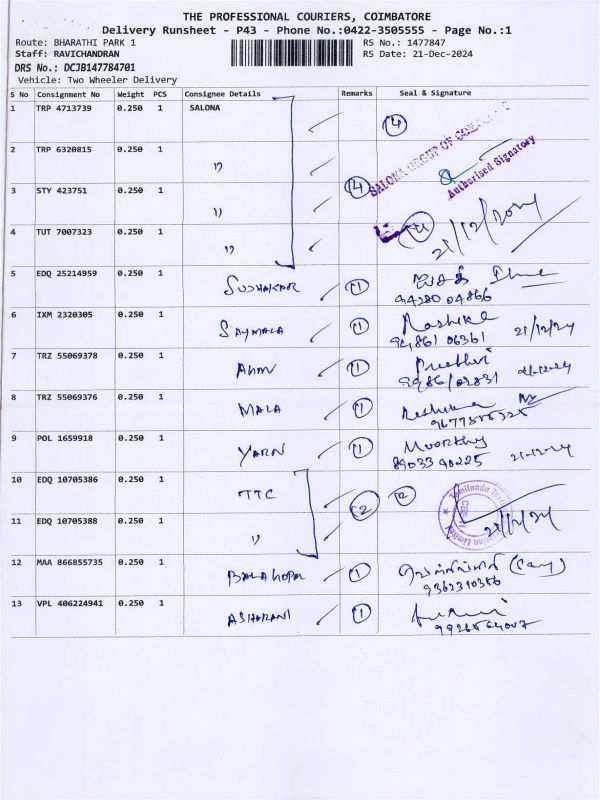 THE PROFESSIONAL COURIERS, COIMBATORE
Delivery Runsheet - P43 - Phone No.:0422-3505555 - Page No.:1
Route: BHARATHI PARK 1 RS No.: 1477847
Staff: RAVICHANDRAN RS Date: 21-Dec-2024
DRS No.: DCJB147784701
Vehicle: Two Wheeler Delivery
S No Consignment No Weight PCS Consignee Details Remarks Seal & Signature
1 TRP 4713739 0.250 1 SALONA 4
2 TRP 6320815 0.250 1 " SALONA GROUP OF
Authorised Signatory
3 STY 423751 0.250 1 " 4
4 TUT 7007323 0.250 1 " 4 21/12/2024
5 EDQ 25214959 0.250 1 SUDHAKAR 1
94280 04866
6 IXM 2320305 0.250 1 1 Rashika
94861 06361 21/12/24
7 TRZ 55069378 0.250 1 1 Preethi
21-12-24
8 TRZ 55069376 0.250 1 MALA 1
9 POL 1659918 0.250 1 YARN 1 Moorthy
89033 90225 21-12-24
10 EDQ 10705386 0.250 1 TTC 2 2
11 EDQ 10705388 0.250 1 " 21/12/24
12 MAA 866855735 0.250 1 BALAGOPAL 1
9362310386
13 VPL 406224941 0.250 1 ASHARANI 1